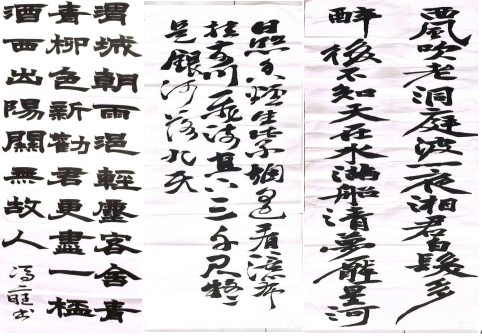 西風吹老洞庭波一夜湘君白髮多
醉後不知天在水滿船清夢壓星河
日照香炉生紫烟遥看瀑布
挂前川飛流直下三千尺疑
是銀河落九天
渭城朝雨浥輕塵客舍青
青柳色新勸君更盡一桮
酒西出陽關無故人